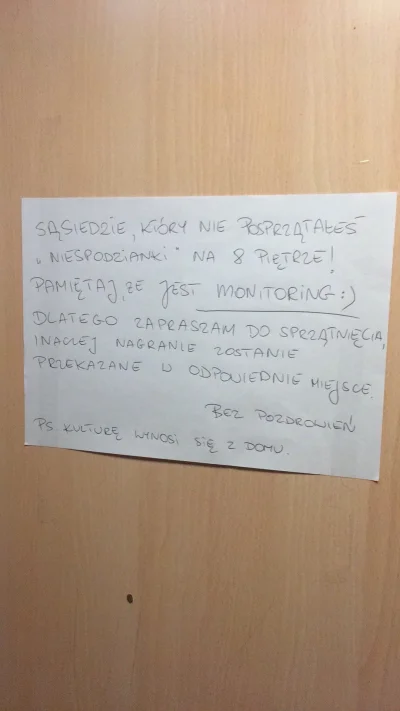 SĄSIEDZIE, KTÓRY NIE POSPRZĄTAŁEŚ
„NIESPODZIANKI" NA 8 PIĘTRZE!
PAMIĘTAJ, ŻE JEST MONITORING :)
DLATEGO ZAPRASZAM DO SPRZĄTNIĘCIA,
INACZEJ NAGRANIE ZOSTANIE
PRZEKAZANE W ODPOWIEDNIE MIEJSCE.
BEZ POZDROWIEŃ
PS. KULTURĘ WYNOSI SIĘ Z DOMU.